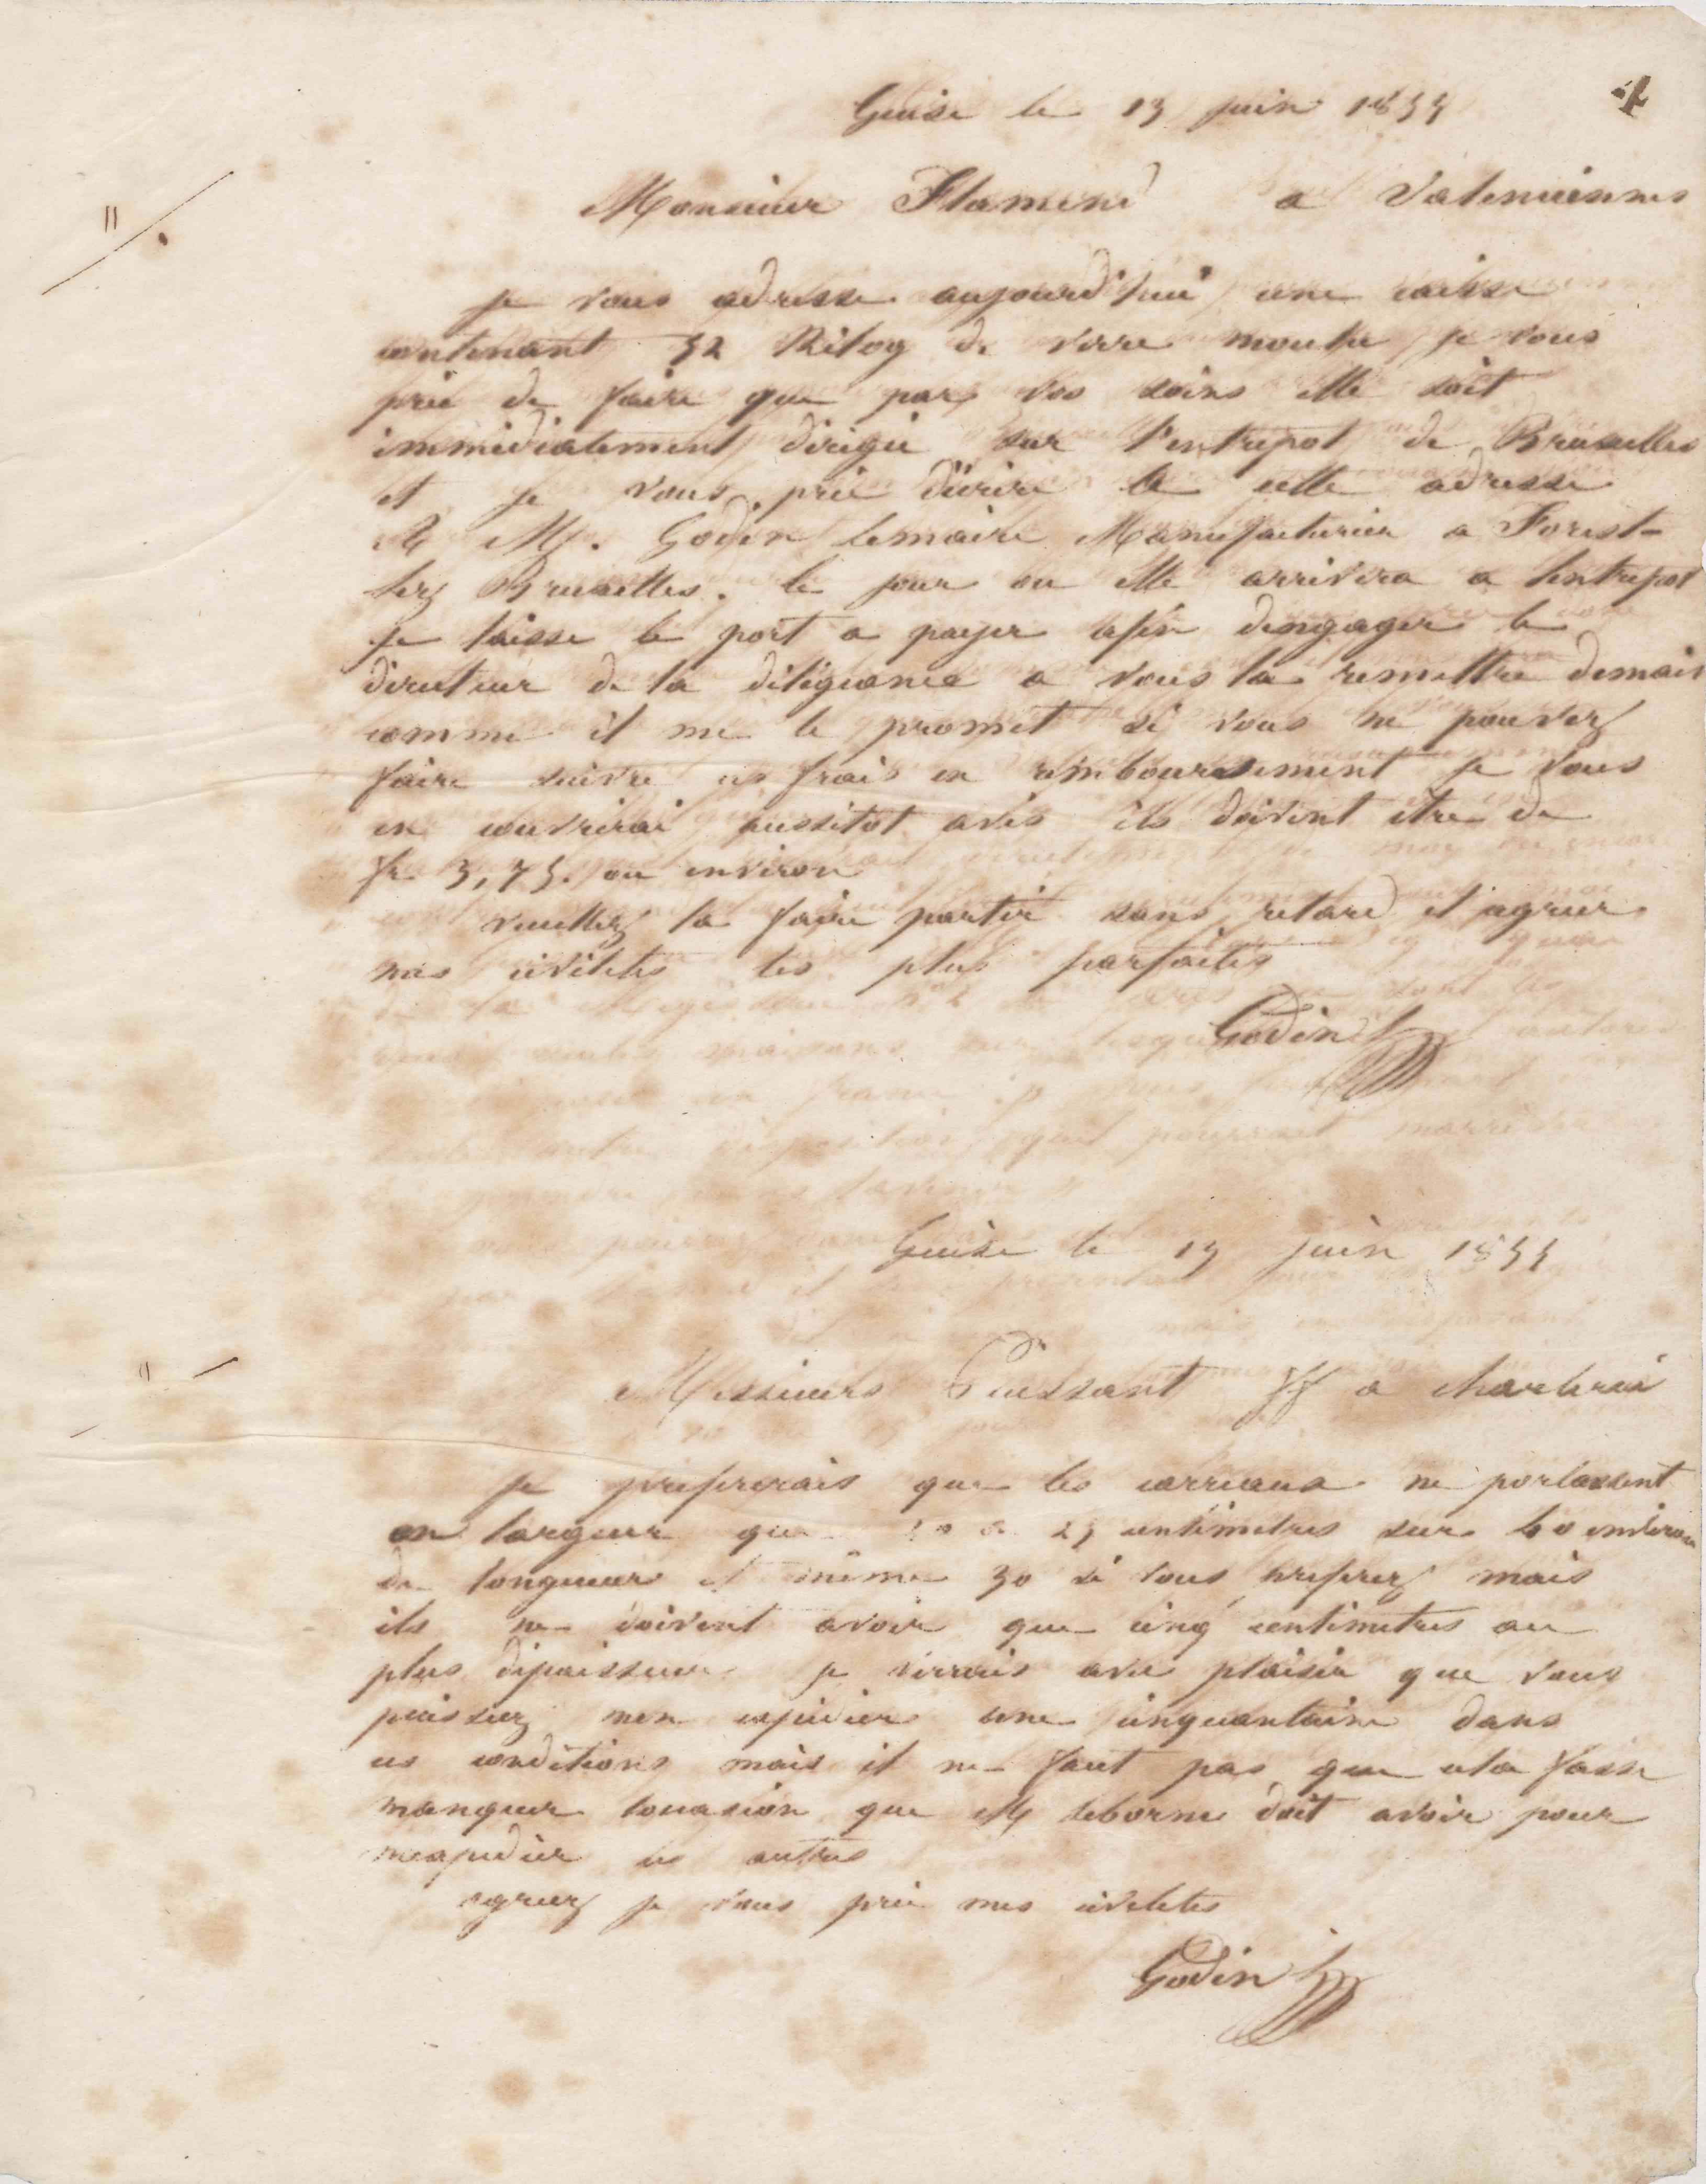 4
Guise le 15 juin 1855
Monsieur Flament a Valenciennes
je vous adresse aujourd'hui une caisse
contenant 52 Kilog de verre moulu je vous
prie de faire que par vos soins elle soit
immediatement dirigée sur l'entrepot de Bruxelles
et je vous prie d'écrire a cette adresse
A M. Godin Lemaire Manufacturier a Forest-
lez Bruxelles. le jour ou elle arrivera a lentrepot
je laisse le port a payer afin dengager le
directeur de la diligeance a vous la remettre demain
comme il me le promet si vous ne pouvez
faire suivre ces frais en remboursement je vous
en couvrirai aussitot avis ils doivent etre de
fr 3,75. ou environ
veuillez la faire partir sans retard et agreer
mes civilités les plus parfaites
Godin
Guise le 15 juin 1855
Messieurs Puissant ff a charleroi
je prefererais que les carreaux ne portassent
en largeur que 20 a 25 centimetres sur 40 environ
de longueur et même 30 si vous preferez mais
ils ne doivent avoir que cinq centimetres au
plus depaisseur je verrais avec plaisir que vous
puissiez men expedier une cinquantaine dans
ces conditions mais il ne faut pas que cela fasse
manquer locasion que M leborne doit avoir pour
mexpedier les autres
agreez je vous prie mes civilités
Godin